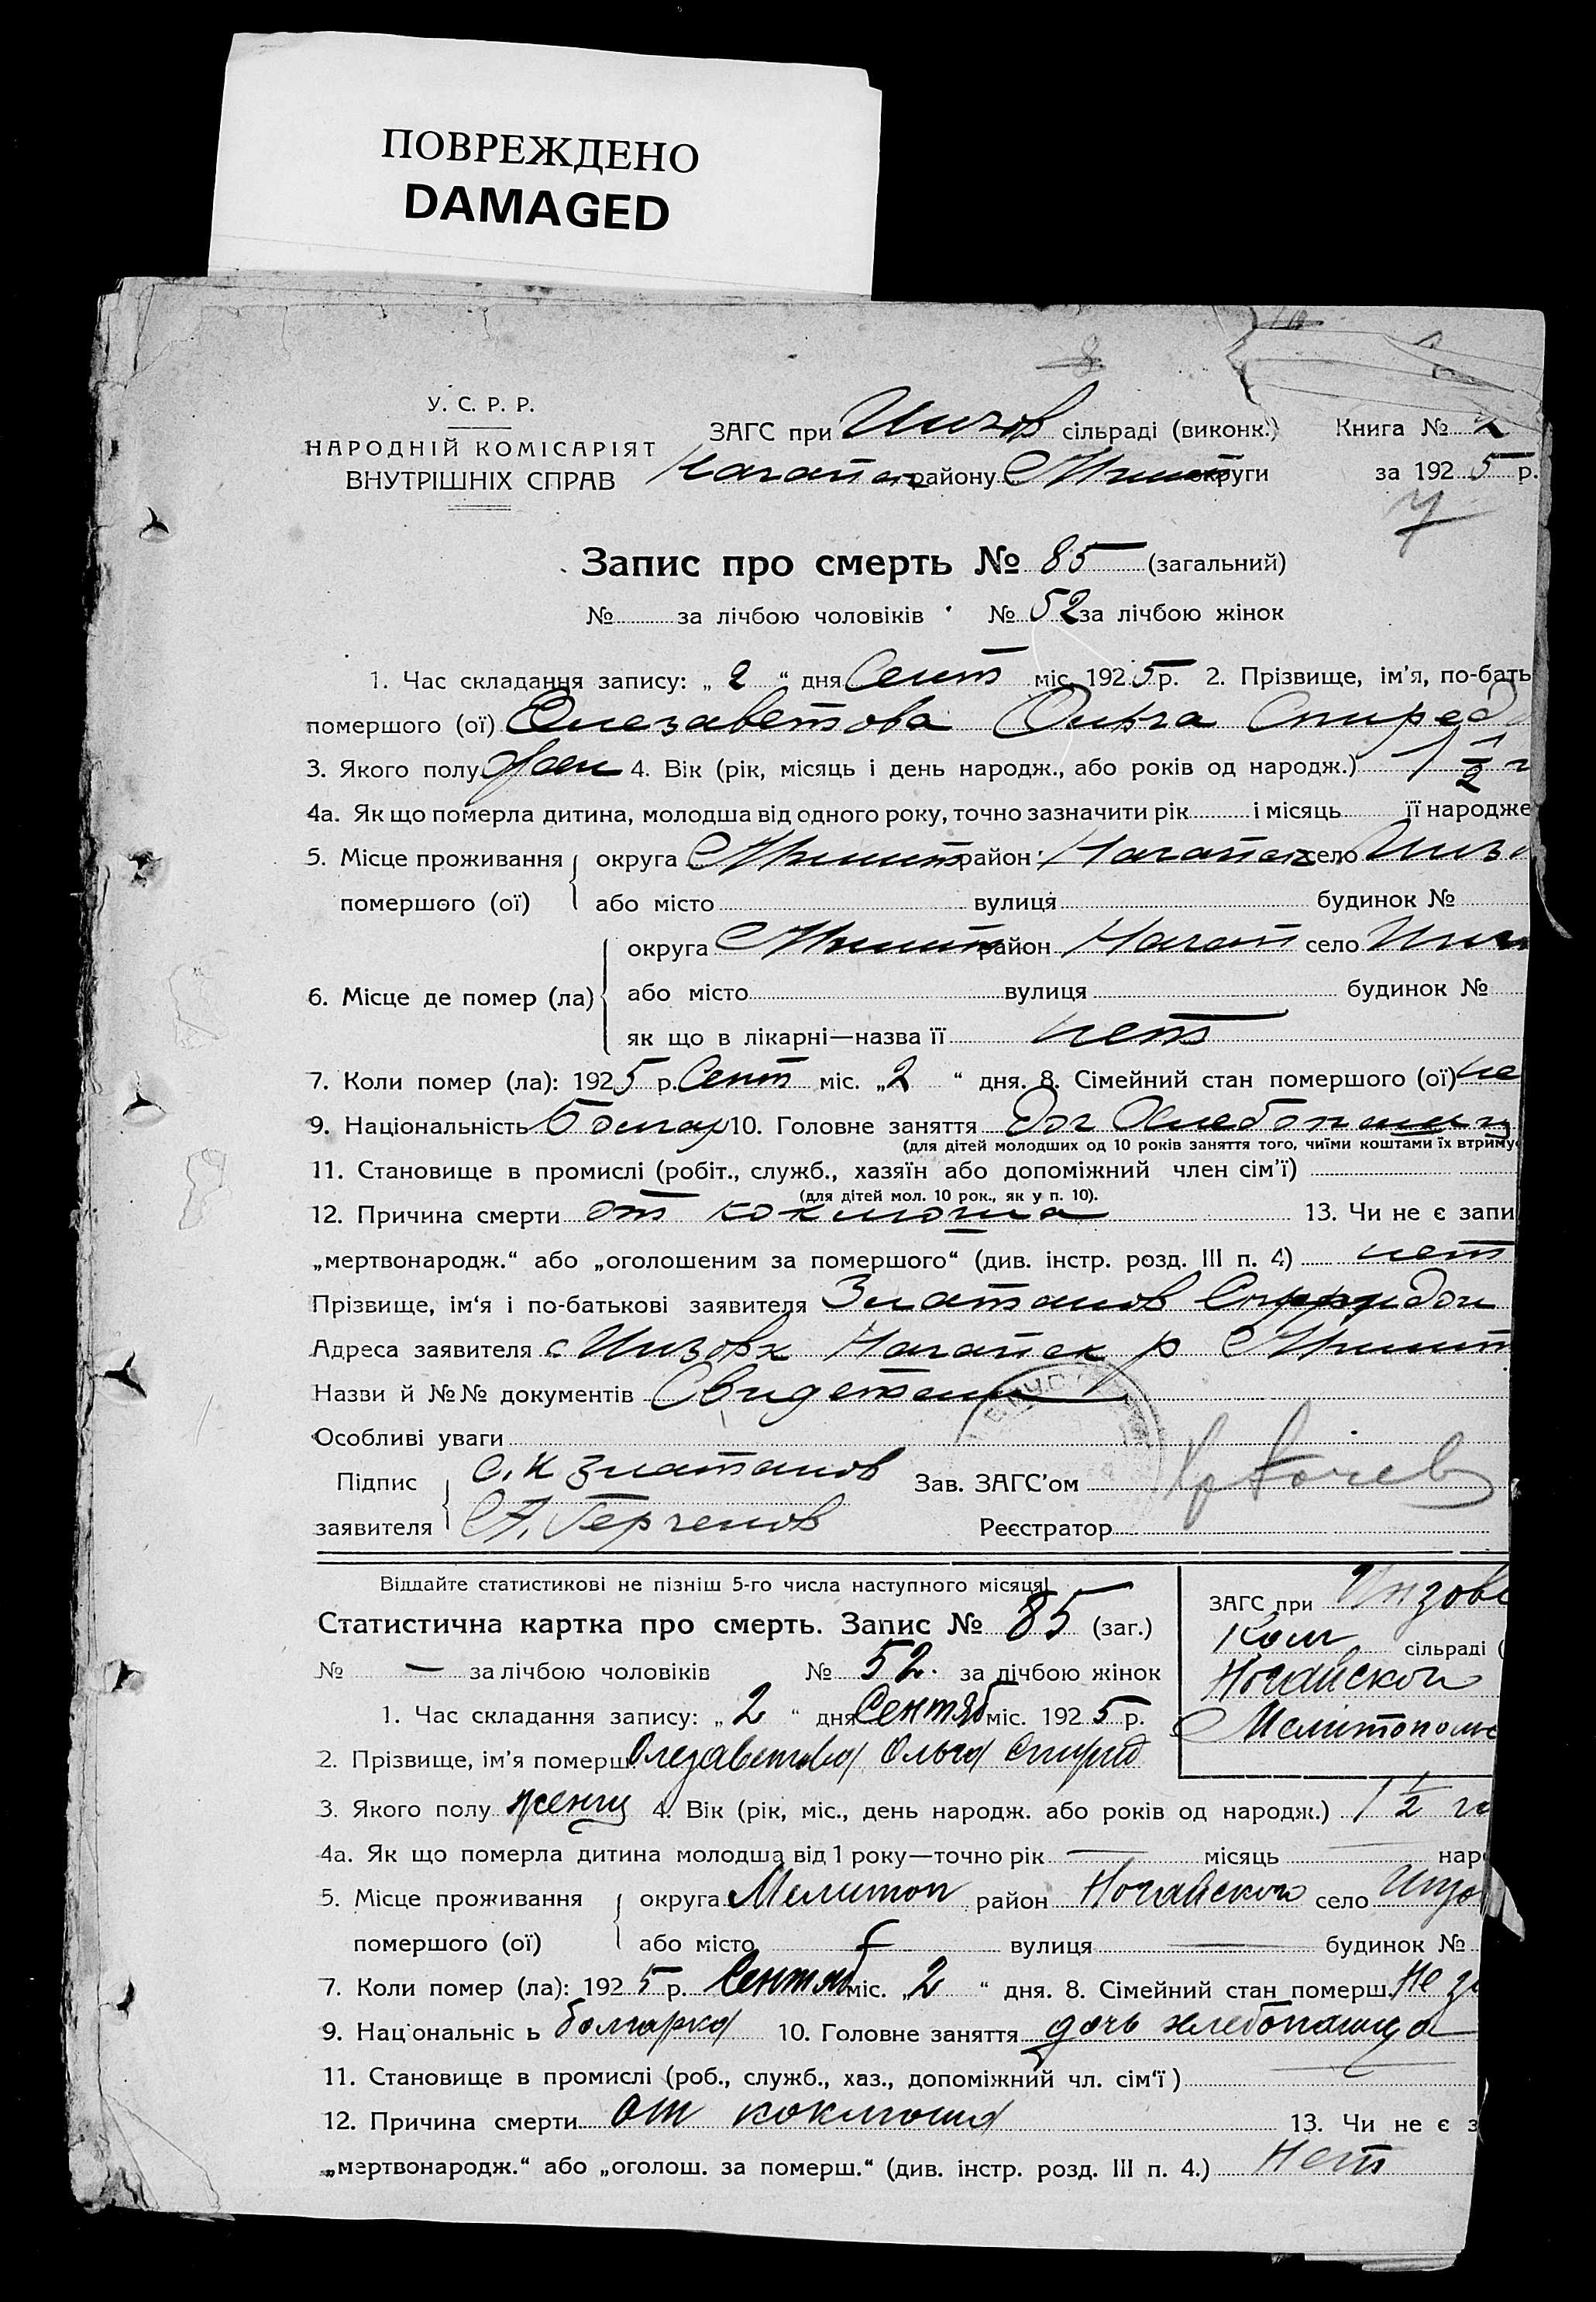 ПОВРЕЖДЕНО
DAMAGED
У. С. Р. Р.
НАРОДНІЙ КОМІСАРІЯТ
ВНУТРІШНІХ СПРАВ
ЗАГС при Инзов сільраді (виконк.) Книга №
Нагайск району округи за 1925 р.
7
Запис про смерть № 85 (загальний)
№ за лічбою чоловіків № 52 за лічбою жінок
1. Час складання запису: „ 2 “ дня Сент міс. 1925 р. 2. Прізвище, ім’я, по-бать
помершого (ої) Олезаветова Ольга Спиред
3. Якого полу жен 4. Вік (рік, місяць і день народж., або років од народж.) 1 1/2 г
4а. Як що померла дитина, молодша від одного року, точно зазначити рік і місяць її народже
5. Місце проживання округа Мелит район Нагайск село Инзо
помершого (ої) або місто вулиця будинок №
округа Мелит район Нагай село Инз
6. Місце де помер (ла) або місто вулиця будинок №
як що в лікарні—назва її нет
7. Коли помер (ла): 1925 р. Сент міс. „2 “ дня. 8. Сімейний стан помершого (ої) не
9. Національність Болгар 10. Головне заняття доч Хлебопашц
(для дітей молодших од 10 років заняття того, чиїми коштами їх втриму
11. Становище в промислі (робіт., служб., хазяїн або допоміжний член сім’ї)
(для дітей мол. 10 рок., як у п. 10).
12. Причина смерти от коклюша 13. Чи не є запи
„мертвонародж.“ або „оголошеним за помершого“ (див. інстр. розд. III п. 4) нет
Прізвище, ім‘я і по-батькові заявителя Златанов Спиридон
Адреса заявителя с Инзовк Нагайск р Мелит
Назви й №№ документів
Особливі уваги
Підпис С. К Златанов Зав. ЗАГС’ом
заявителя А. Герченов Реєстратор
Віддайте статистикові не пізніш 5-го числа наступного місяця!
Статистична картка про смерть. Запис № 85 (заг.)
ЗАГС при Инзовс
сільраді (
№ — за лічбою чоловіків № 52. за лічбою жінок
Ногайскої
1. Час складання запису: „ 2 “ дня Сентяб міс. 1925 р.
Мелитополь
2. Прізвище, ім’я померш. Олезаветова Ольга Спирид
3. Якого полу женщ 4. Вік (рік, міс., день народж. або років од народж.) 1 1/2 го
4а. Як що померла дитина молодша від 1 року—точно рік — місяць — наро
5. Місце проживання округа Мелитоп район Ногайского село Инзо
помершого (ої) або місто вулиця — будинок №
7. Коли помер (ла): 1925 р. Сентяб міс. „2 “ дня. 8. Сімейний стан померш. не з
9. Національніс ь болгарка 10. Головне заняття дочь хлебопашца
11. Становище в промислі (роб., служб., хаз., допоміжний чл. сім‘ї) —
12. Причина смерти от коклюша 13. Чи не є з
„мертвонародж.“ або „оголош. за померш.“ (див. інстр. розд. III п. 4.) Нет